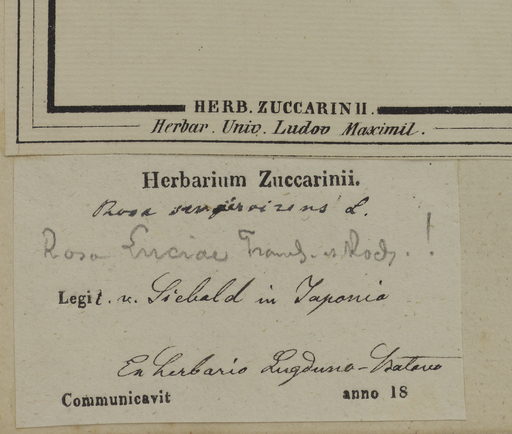 HERB. ZUCCARINII.
Herbar. Univ. Ludov Maximil.
Herbarium Zuccarinii.
Rosa sempervirens L.
Rosa Luciae Franch. et Roch. !
Legit. v. Siebold in Japonia
Ex herbario Lugduno-Batavo
Communicavit anno 18